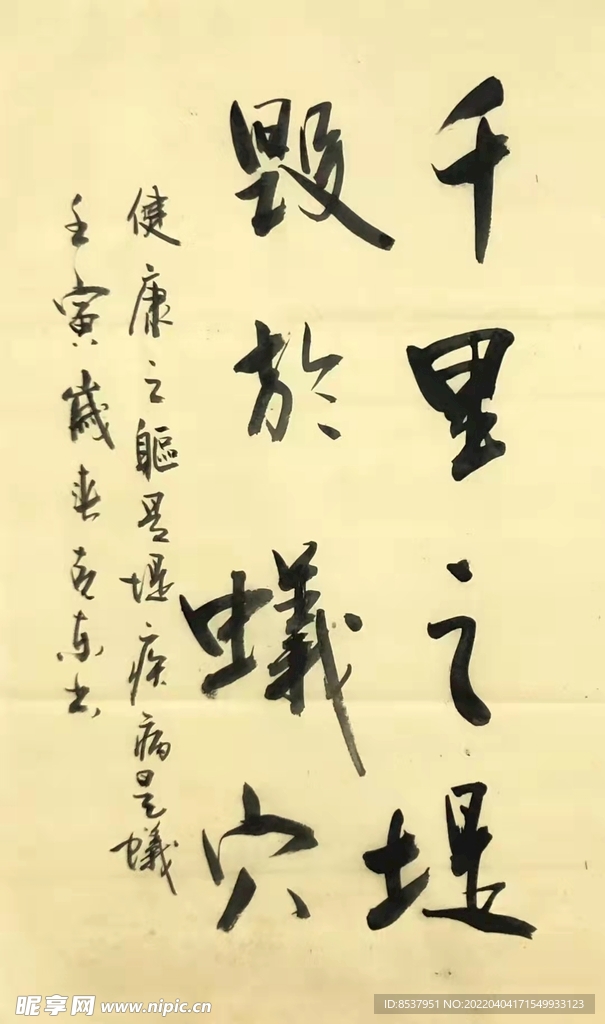 千里之堤
毀於蟻穴
健康之軀是堤疾病是蟻
壬寅歲春克东书
昵享网 www.nipic.cn
ID:8537951 NO:20220404171549933123